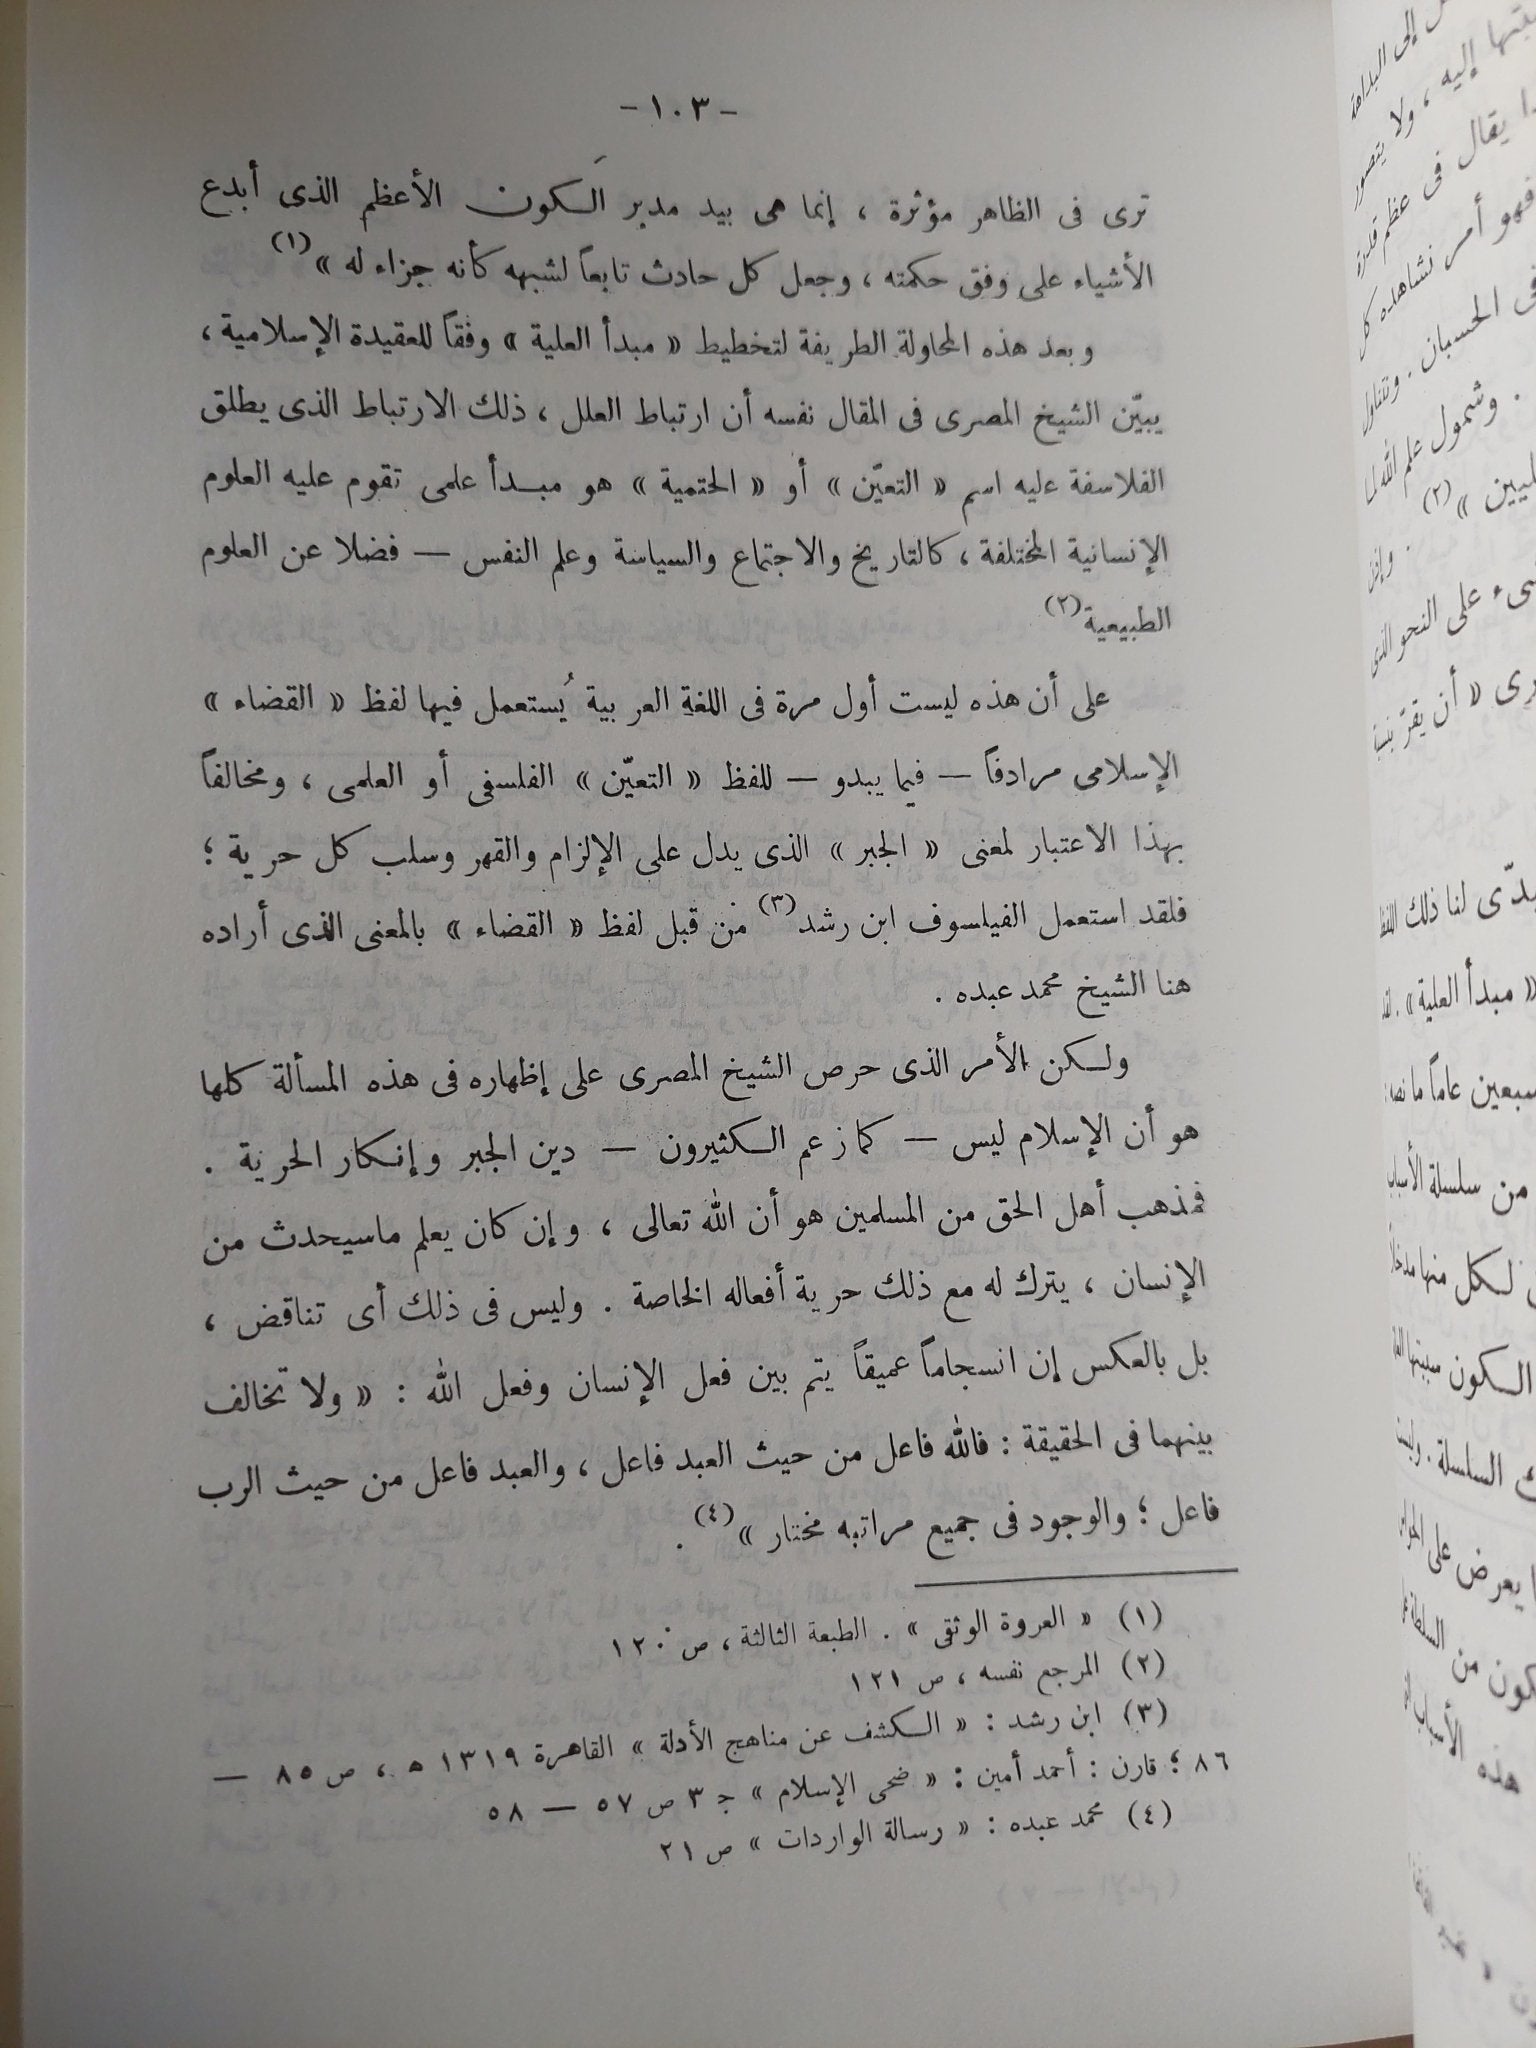 - ١٠٣ -
ترى فى الظاهر مؤثرة ، إنما هى بيد مدبر الكون الأعظم الذى أبدع
الأشياء على وفق حكمته ، وجعل كل حادث تابعاً لشبهه كأنه جزاء له » (١)
وبعد هذه المحاولة الطريفة لتخطيط « مبدأ العلية » وفقاً للعقيدة الإسلامية ،
يبيّن الشيخ المصرى فى المقال نفسه أن ارتباط العلل ، ذلك الارتباط الذى يطلق
الفلاسفة عليه اسم « التعيّن » أو « الحتمية » هو مبدأ علمى تقوم عليه العلوم
الإنسانية المختلفة ، كالتاريخ والاجتماع والسياسة وعلم النفس — فضلا عن العلوم
الطبيعية (٢)
على أن هذه ليست أول مرة فى اللغة العربية يُستعمل فيها لفظ « القضاء »
الإسلامى مرادفاً — فيما يبدو — للفظ « التعيّن » الفلسفى أو العلمى ، ومخالفاً
بهذا الاعتبار لمعنى « الجبر » الذى يدل على الإلزام والقهر وسلب كل حرية ؛
فلقد استعمل الفيلسوف ابن رشد (٣) من قبل لفظ « القضاء » بالمعنى الذى أراده
هنا الشيخ محمد عبده .
ولكن الأمر الذى حرص الشيخ المصرى على إظهاره فى هذه المسألة كلها
هو أن الإسلام ليس — كما زعم الكثيرون — دين الجبر وإنكار الحرية .
فمذهب أهل الحق من المسلمين هو أن الله تعالى ، وإن كان يعلم ماسيحدث من
الإنسان ، يترك له مع ذلك حرية أفعاله الخاصة . وليس فى ذلك أى تناقض ،
بل بالعكس إن انسجاماً عميقاً يتم بين فعل الإنسان وفعل الله : « ولا تخالف
بينهما فى الحقيقة : فالله فاعل من حيث العبد فاعل ، والعبد فاعل من حيث الرب
فاعل ؛ والوجود فى جميع مراتبه مختار » (٤) .
(١) « العروة الوثقى » . الطبعة الثالثة ، ص ١٢٠
(٢) المرجع نفسه ، ص ١٢١
(٣) ابن رشد : « الكشف عن مناهج الأدلة » القاهرة ١٣١٩ ه ، ص ٨٥ —
٨٦ ؛ قارن : أحمد أمين : « ضحى الإسلام » ج ٣ ص ٥٧ — ٥٨
(٤) محمد عبده : « رسالة الواردات » ص ٢١
إلى البداهة
إليه ، ولا يتصور
يقال فى عظم قدرة
فهو أمر نشاهده كل
فى الحسبان .
. وشمول علم الله لما
(٢)
على النحو الذى
« أن يقرّ
لنا ذلك
« مبدأ العلية » .
سبعين عاماً ما نصه :
من سلسلة الأسباب
لكل منها مدخلا
الكون
السلسلة .
يعرض على
من السلطة
هذه الأسباب